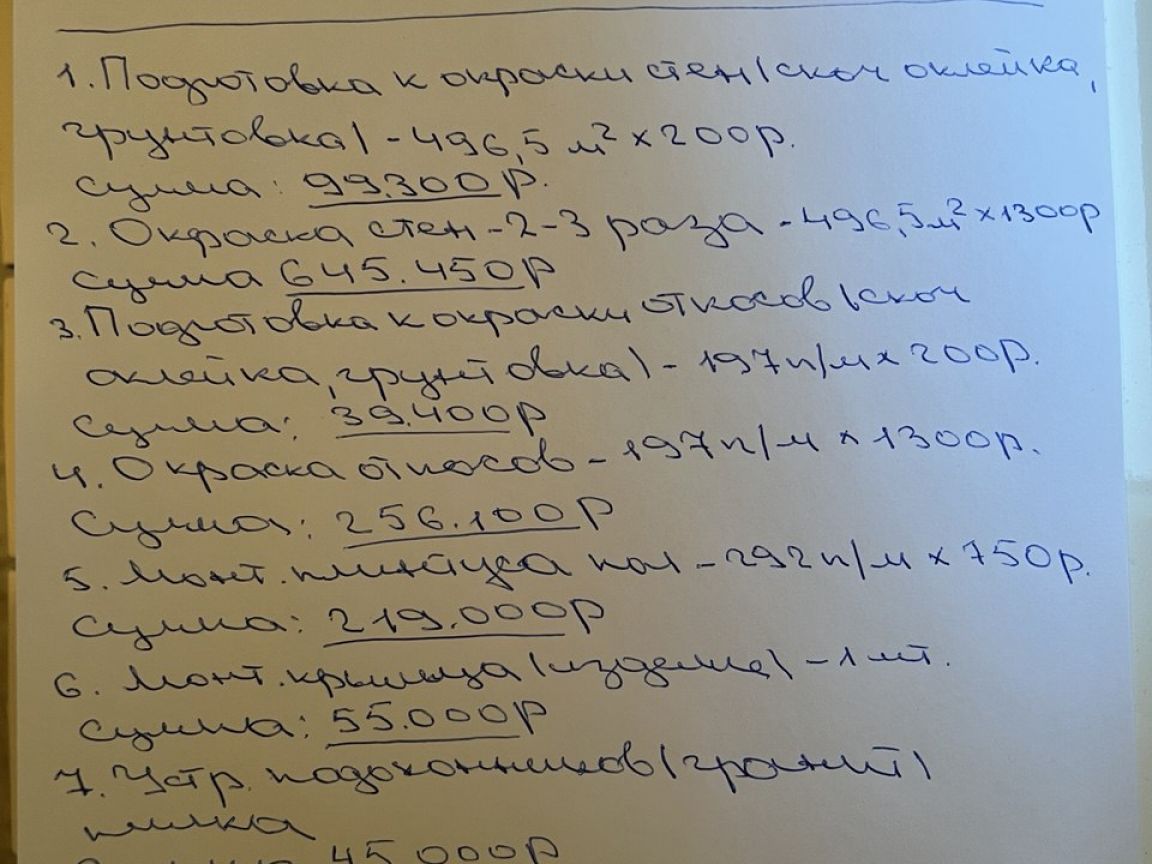 1. Подготовка к окраски стен (скоч оклейка,
грунтовка) - 496,5 м² х 200р.
сумма: 99.300р.
2. Окраска стен - 2-3 раза - 496,5м² х 1300р
сумма 645.450р
3. Подготовка к окраски откосов (скоч
оклейка, грунтовка) - 197п/м х 200р.
сумма: 39.400р
4. Окраска откосов - 197п/м х 1300р.
сумма: 256.100р
5. Монт. плинтуса пол - 292п/м х 750р.
сумма: 219.000р
6. Монт. крыльца (изделие) - 1 шт.
сумма: 55.000р
7. Устр. подоконников (гранит)
45 000р